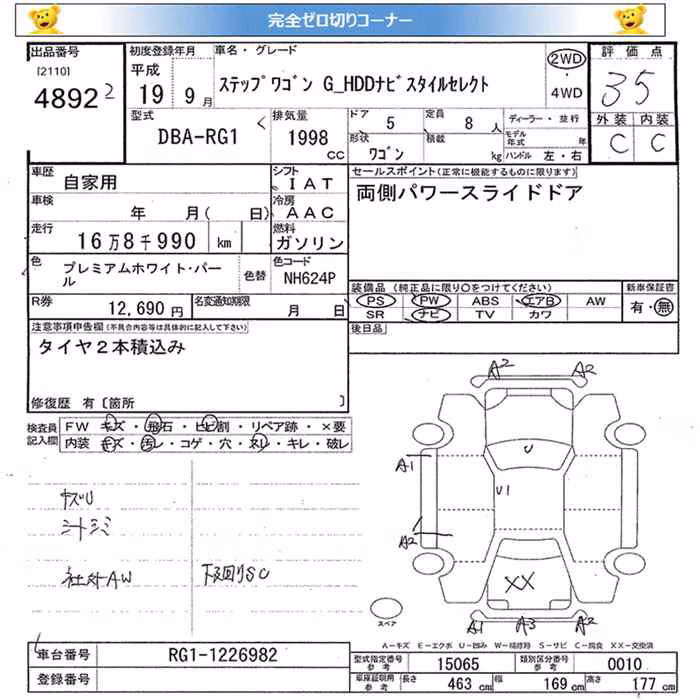 完全ゼロ切りコーナー
出品番号
[2110]
4892 2
初度登録年月
平成
19年 9月
車名・グレード
ステップワゴン G_HDDナビスタイルセレクト
2WD
・
4WD
評価点
35
外装 内装
C C
型式
DBA-RG1
排気量
1998
CC
ドア 5
定員 8人
形状 ワゴン
積載 kg
ディーラー・並行
モデル年式 年
ハンドル 左・右
車歴 自家用
シフト IAT
車検 年 月( 日)
冷房 AAC
走行 16万8千990 km
燃料 ガソリン
色 プレミアムホワイト・パール
色替
色コード NH624P
R券 12,690円
名変通知期限 月 日
セールスポイント(正常に機能するものに限ります)
両側パワースライドドア
装備品(純正品に限り○をつけてください)
PS PW ABS エアB AW
SR ナビ TV カワ
新車保証書
有・無
後日品
注意事項申告欄(不具合内容等は具体的に記入して下さい)
タイヤ2本積込み
修復歴 有〔箇所 〕
検査員記入欄
FW キズ・飛石・ヒビ割・リペア跡・×要
内装 キズ・汚レ・コゲ・穴・スレ・キレ・破レ
A2 A2
A1
U
U1
A2
XX
A1 A3 A2
キズU
シートシミ
社外AW
下回りSC
スペア
A-キズ E-エクボ U-凹み W-補修跡 S-サビ C-腐食 XX-交換済
車台番号 RG1-1226982
登録番号
型式指定番号 参考 15065
類別区分番号 参考 0010
車庫証明用 参考 長さ 463cm 幅 169cm 高さ 177cm